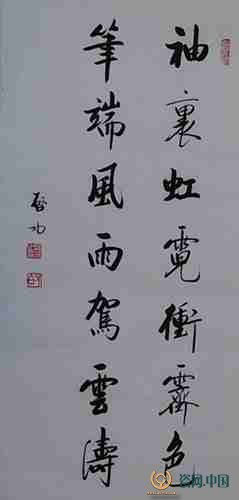 袖裏虹霓衝霽色
筆端風雨駕雲濤
啟功
盗网.中国